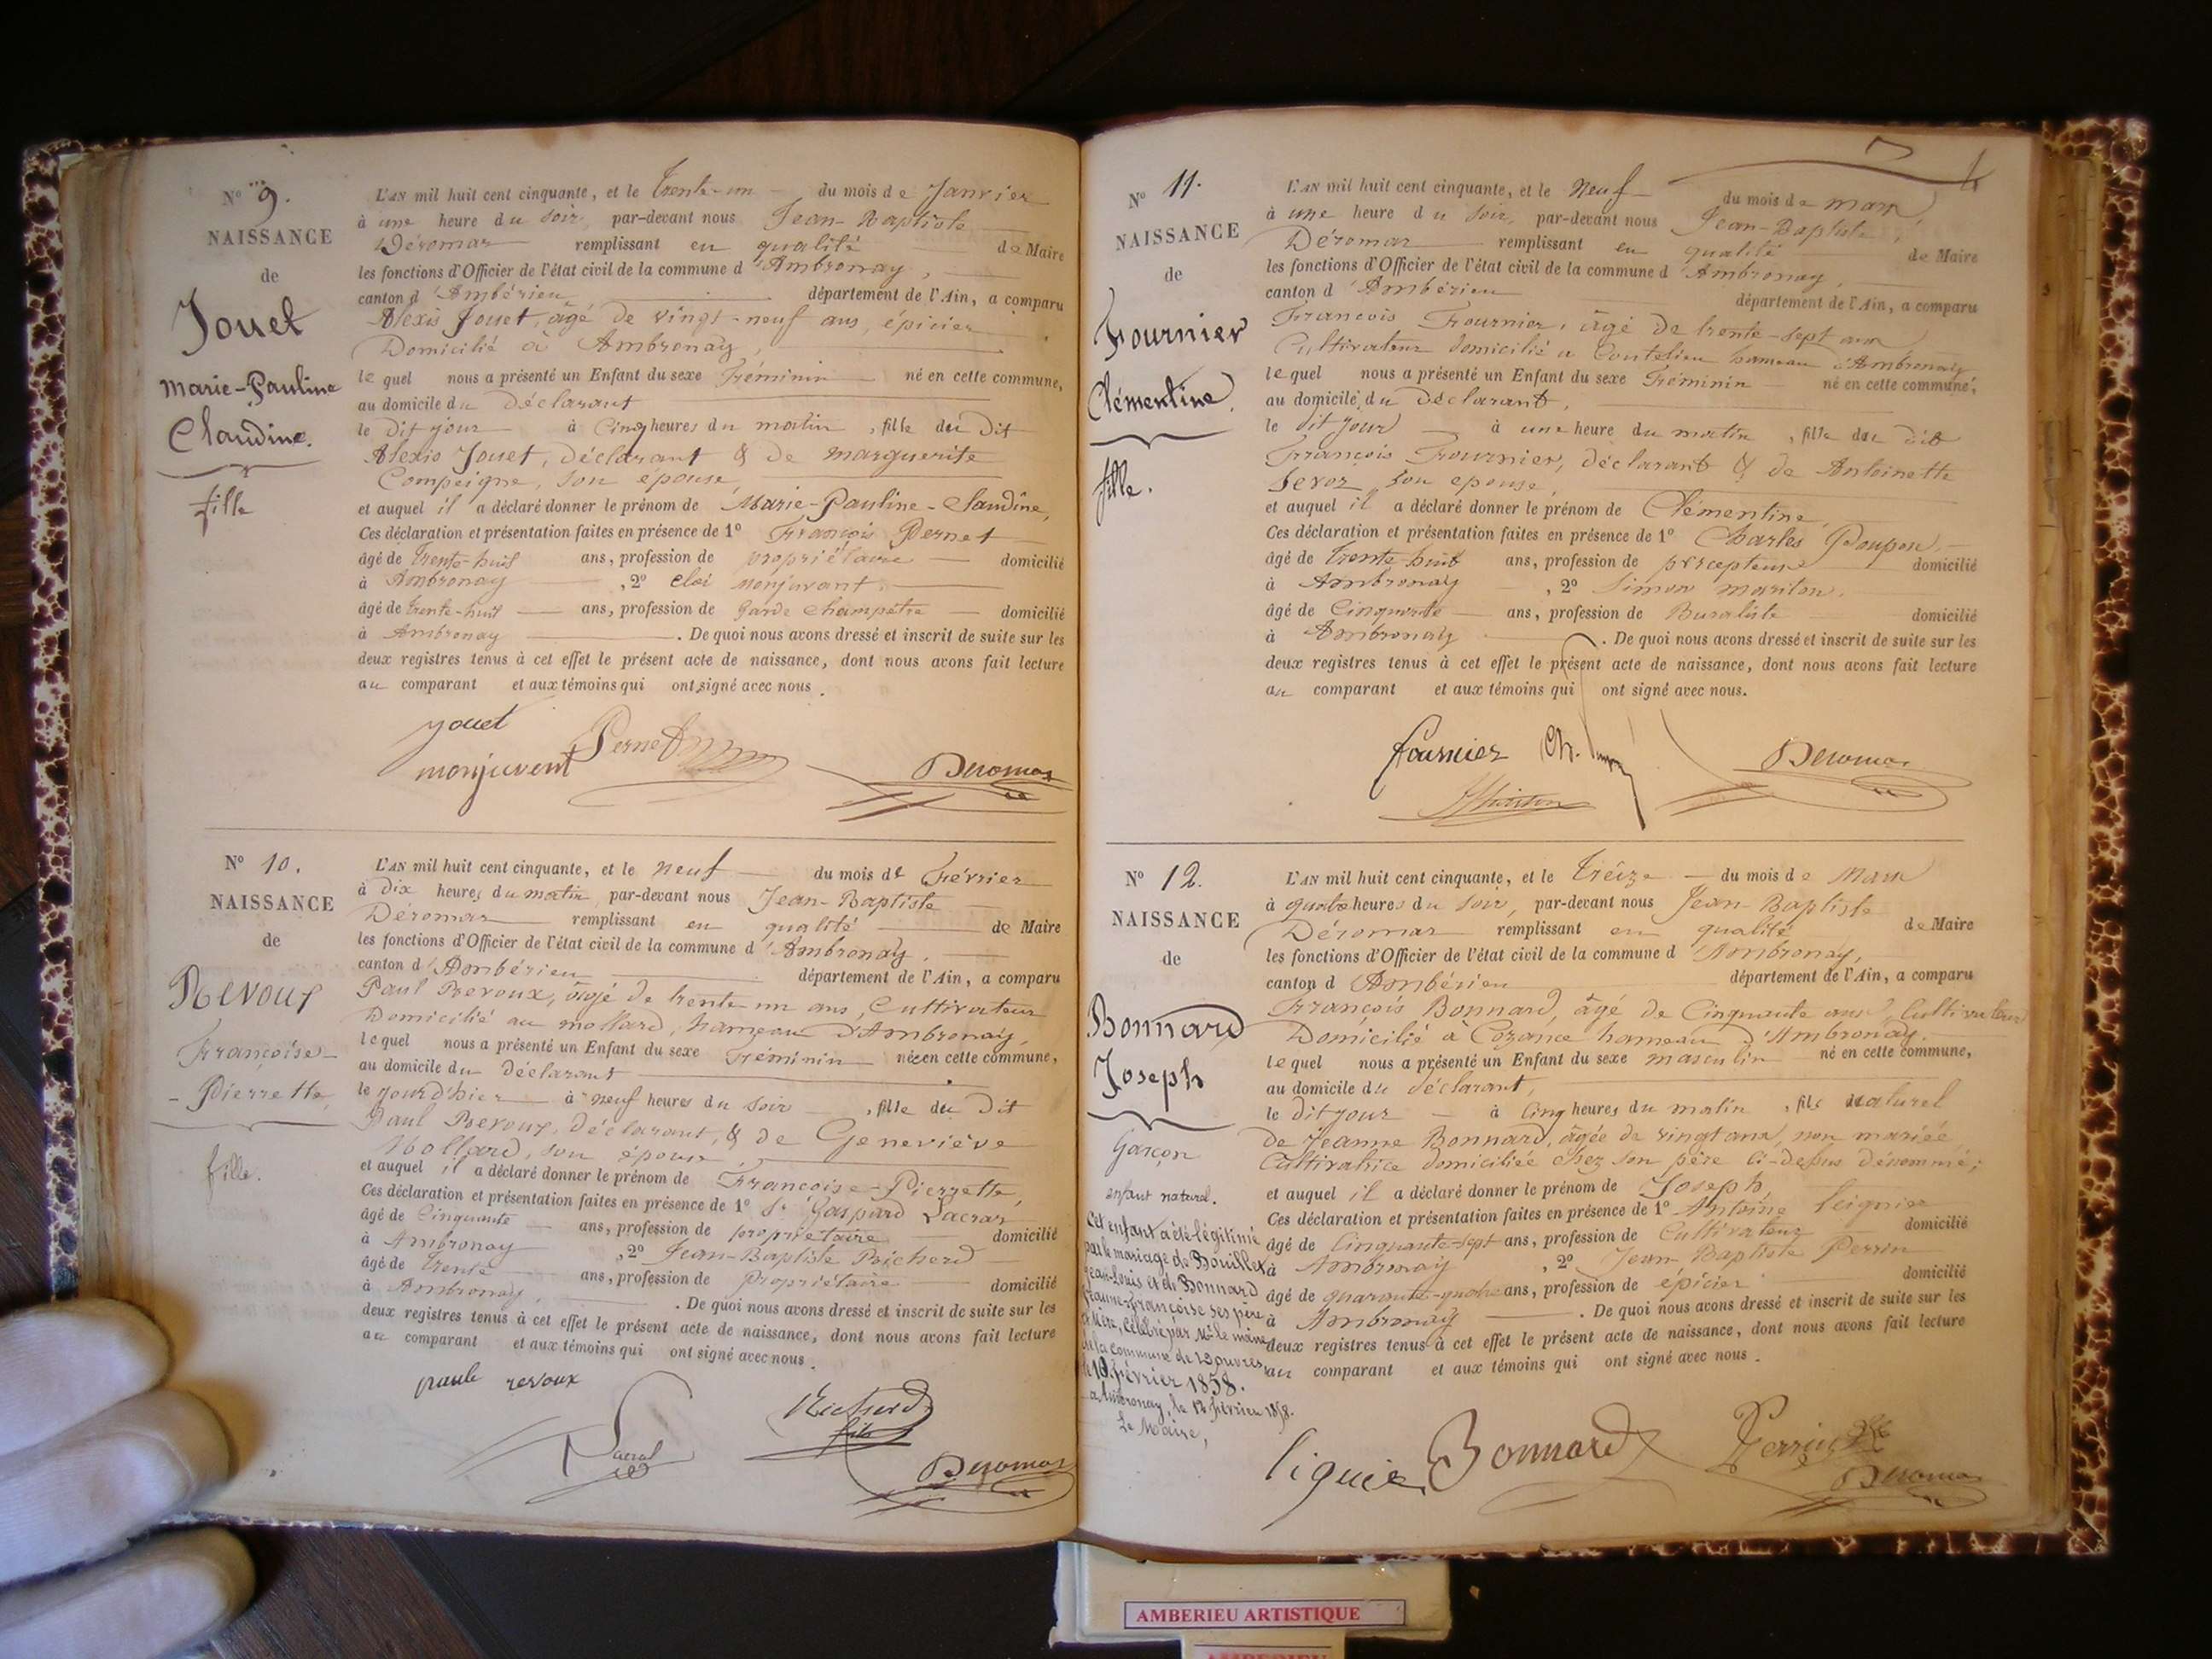 N° 9.
NAISSANCE
de
Jouet
Marie-Pauline
Claudine.
fille
L'AN mil huit cent cinquante, et le trente-un du mois de Janvier
à une heure du soir, par-devant nous Jean-Baptiste
Déromas remplissant en qualité de Maire
les fonctions d'Officier de l'état civil de la commune d'Ambronay,
canton d'Ambérieu département de l'Ain, a comparu
Alexis Jouet, âgé de vingt-neuf ans, épicier
Domicilié à Ambronay,
lequel nous a présenté un Enfant du sexe Féminin né en cette commune,
au domicile du déclarant
le dit jour à cinq heures du matin, fille du dit
Alexis Jouet, déclarant & de marguerite
Compeigne, son épouse,
et auquel il a déclaré donner le prénom de Marie-Pauline-Claudine,
Ces déclaration et présentation faites en présence de 1° François Pernet
âgé de trente-huit ans, profession de propriétaire domicilié
à Ambronay, 2° eloi monjuvant,
âgé de trente-huit ans, profession de Garde champêtre domicilié
à Ambronay. De quoi nous avons dressé et inscrit de suite sur les
deux registres tenus à cet effet le présent acte de naissance, dont nous avons fait lecture
au comparant et aux témoins qui ont signé avec nous.
jouet Pernet
monjuvent Deromas
N° 10.
NAISSANCE
de
Revoux
Françoise-
-Pierrette,
fille.
L'AN mil huit cent cinquante, et le neuf du mois de Février
à dix heures du matin, par-devant nous Jean-Baptiste
Déromas remplissant en qualité de Maire
les fonctions d'Officier de l'état civil de la commune d'Ambronay,
canton d'Ambérieu département de l'Ain, a comparu
Paul Revoux, âgé de trente un ans, Cultivateur
Domicilié au mollard, hameau d'Ambronay,
lequel nous a présenté un Enfant du sexe Féminin née en cette commune,
au domicile du déclarant
le jourd'hier à neuf heures du soir, fille du dit
Paul Revoux, déclarant, & de Geneviève
Mollard, son épouse,
et auquel il a déclaré donner le prénom de Françoise-Pierrette,
Ces déclaration et présentation faites en présence de 1° Sr Gaspard
âgé de Cinquante ans, profession de propriétaire domicilié
à Ambronay, 2° Jean-Baptiste Richerd
âgé de trente ans, profession de Propriétaire domicilié
à Ambronay. De quoi nous avons dressé et inscrit de suite sur les
deux registres tenus à cet effet le présent acte de naissance, dont nous avons fait lecture
au comparant et aux témoins qui ont signé avec nous.
paule revoux
Richerd
fils
Deromas
N° 11.
NAISSANCE
de
Fournier
Clémentine.
fille.
L'AN mil huit cent cinquante, et le neuf du mois de mars,
à une heure du soir, par-devant nous Jean-Baptiste
Déromas remplissant en qualité de Maire
les fonctions d'Officier de l'état civil de la commune d'Ambronay,
canton d'Ambérieu département de l'Ain, a comparu
François Fournier, âgé de trente-sept ans
Cultivateur domicilié a Coutelieu hameau d'Ambronay
lequel nous a présenté un Enfant du sexe Féminin né en cette commune,
au domicile du déclarant,
le dit jour à une heure du matin, fille du dit
François Fournier, déclarant & de Antoinette
son epouse,
et auquel il a déclaré donner le prénom de Clémentine,
Ces déclaration et présentation faites en présence de 1° Charles Poupon,
âgé de trente huit ans, profession de percepteur domicilié
à Ambronay, 2° Simon mariton,
âgé de Cinquante ans, profession de Buraliste domicilié
à Ambronay. De quoi nous avons dressé et inscrit de suite sur les
deux registres tenus à cet effet le présent acte de naissance, dont nous avons fait lecture
au comparant et aux témoins qui ont signé avec nous.
fournier Ch.
Deromas
N° 12.
NAISSANCE
de
Bonnard
Joseph
Garçon
enfant naturel.
Cet enfant a été légitimé
par le mariage de Bouillet
Jean-Louis et de Bonnard
Jeanne-Françoise ses père
et Mère, célébré par Mr le maire
de la commune de Douvres
le 10 février 1858.
a Ambronay, le 12 février 1858.
Le Maire,
L'AN mil huit cent cinquante, et le treize du mois de Mars
à quatre heures du soir, par-devant nous Jean-Baptiste
Déromas remplissant en qualité de Maire
les fonctions d'Officier de l'état civil de la commune d'Ambronay,
canton d'Ambérieu département de l'Ain, a comparu
François Bonnard, âgé de Cinquante ans, Cultivateur
Domicilié à Cozance hameau d'Ambronay.
lequel nous a présenté un Enfant du sexe masculin né en cette commune,
au domicile du déclarant,
le dit jour à cinq heures du matin, fils naturel
de Jeanne Bonnard, âgée de vingt ans, non mariée
Cultivatrice domiciliée chez son père ci-dessus dénommé;
et auquel il a déclaré donner le prénom de Joseph
Ces déclaration et présentation faites en présence de 1° Antoine
âgé de Cinquante-sept ans, profession de Cultivateur domicilié
à Ambronay, 2° Jean Baptiste Perrin
âgé de quarante-quatre ans, profession de épicier domicilié
à Ambronay. De quoi nous avons dressé et inscrit de suite sur les
deux registres tenus à cet effet le présent acte de naissance, dont nous avons fait lecture
au comparant et aux témoins qui ont signé avec nous.
Bonnard Perrin
Deromas
AMBERIEU ARTISTIQUE